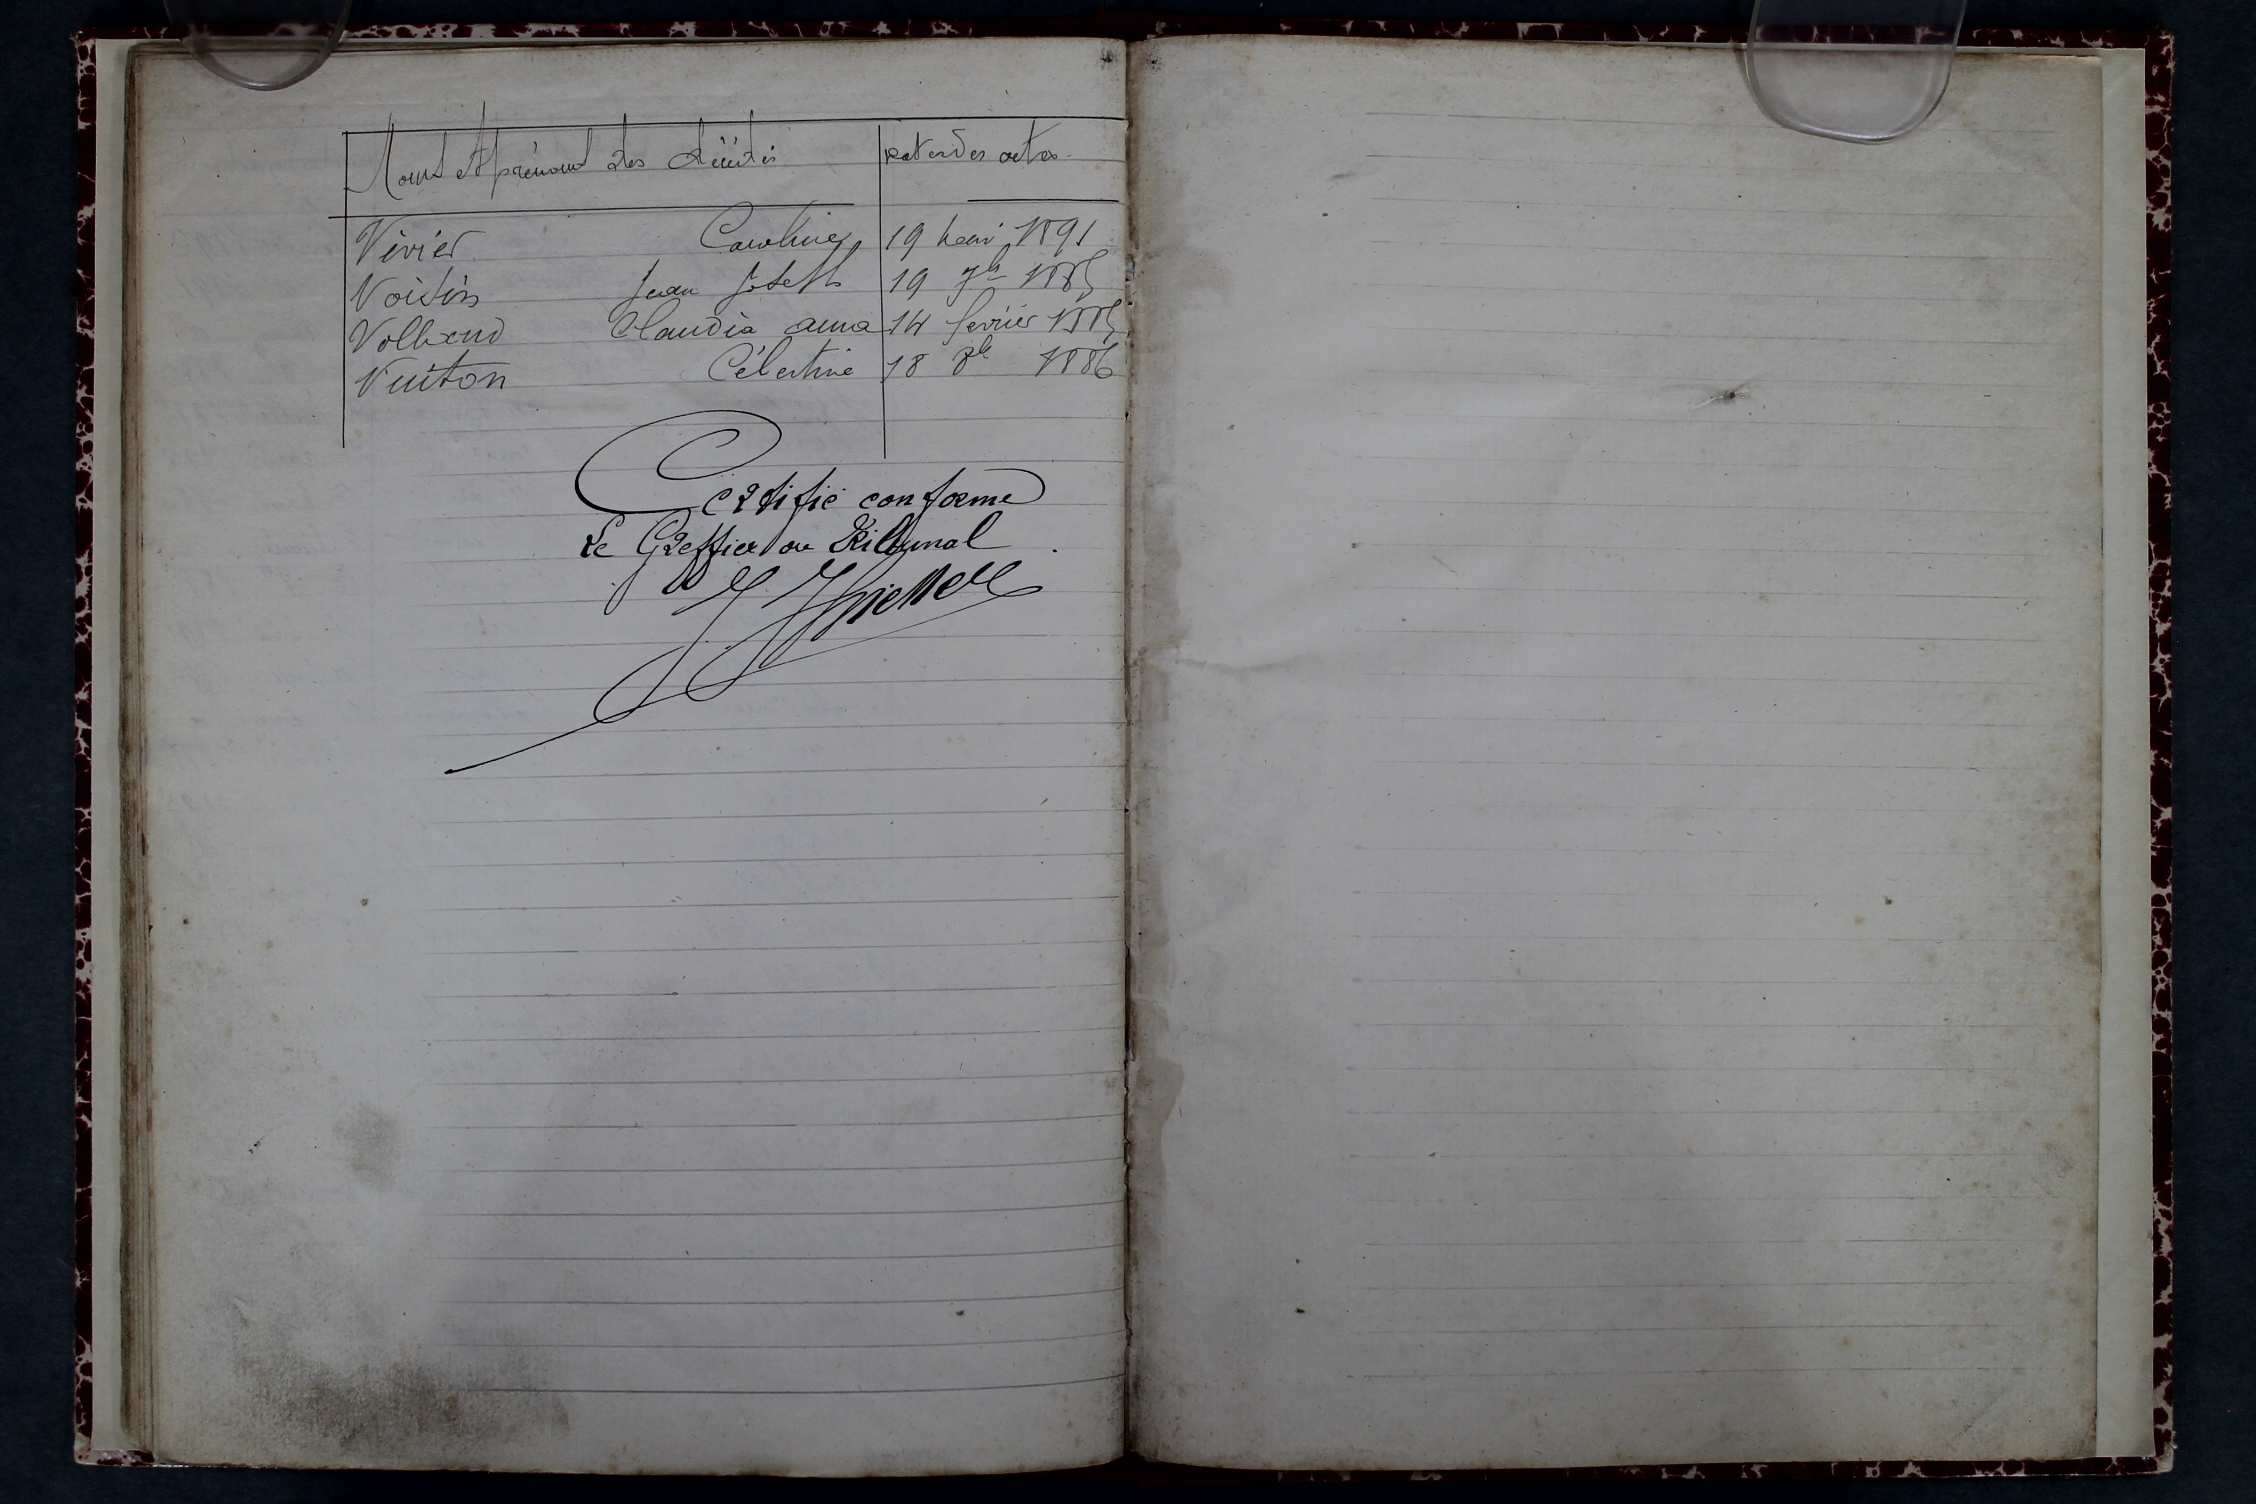 Noms et prénoms des décédés Dates des actes
Vivier Caroline 19 1891
Voisin Jean Joseph 19 7b 1885
Volland Claudia anna 14 fevrier 1885
Vuiton Célestine 18 8b 1886
Certifié conforme
Le Greffier du Tribunal